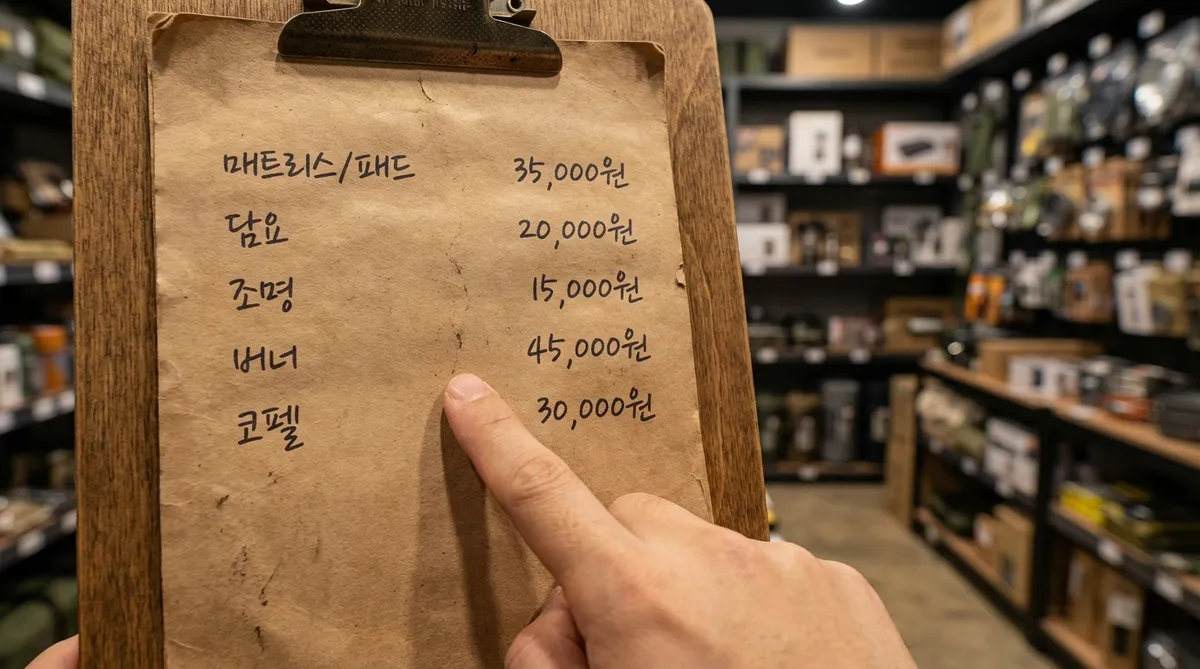 매트리스/패드 35,000원
담요 20,000원
조명 15,000원
버너 45,000원
코펠 30,000원